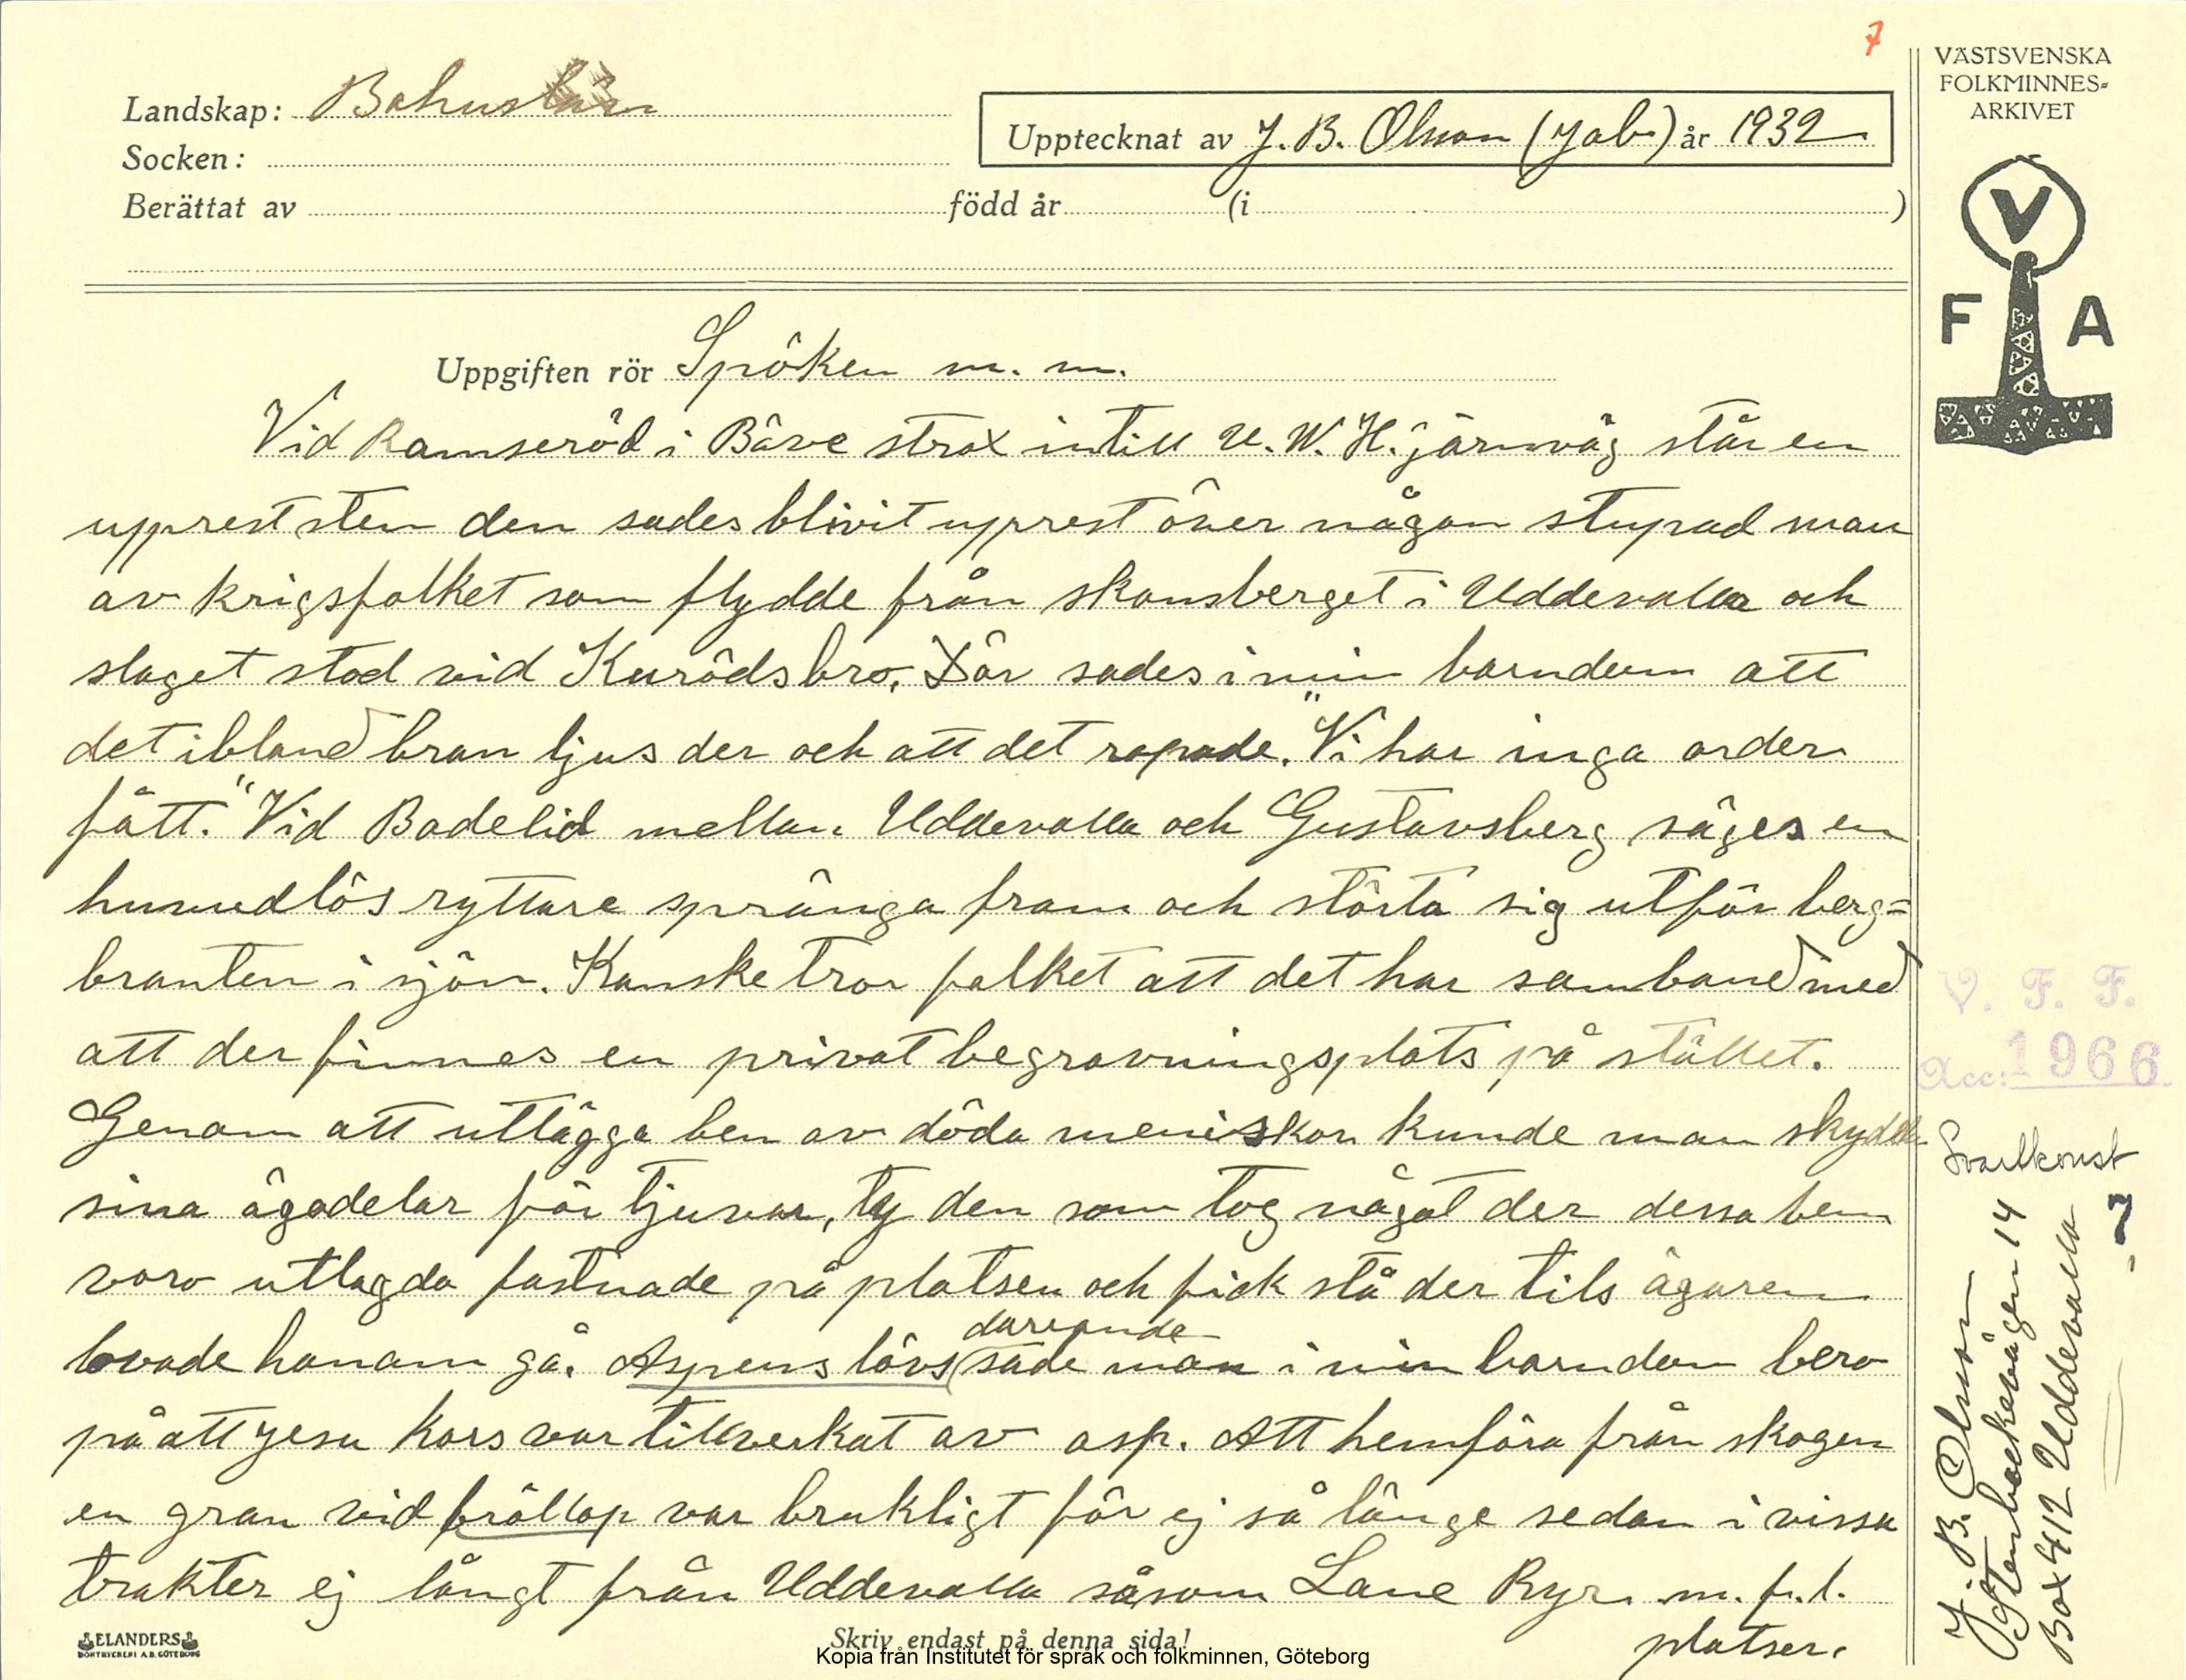 7
VÄSTSVENSKA
FOLKMINNES-
ARKIVET
Landskap: Bohuslän
Upptecknat av J. B. Olsson (Jab.) år 1932
Socken:
Berättat av född år (i )
V
F A
Uppgiften rör Spöken m. m.
Vid Ramseröd i Bäve strax intill U. W. H. järnväg står en
upprest sten den sades blivit upprest över någon stupad man
av krigsfolket som flydde från skansberget i Uddevalla och
slaget stod vid Kurödsbro. Där sades i min barndom att
det ibland bran ljus der och att det ropade. "Vi har inga order
fått." Vid Badelid mellan Uddevalla och Gustavsberg säges en
huvudlös ryttare spränga fram och störta sig utför berg=
branten i sjön. Kanske tror folket att det har samband med
att der finnes en privat begravningsplats på stället.
Genom att utlägga ben av döda meniskor kunde man skydda
sina ägodelar för tjuvar, ty den som tog något der dessa ben
voro utlagda fastnade på platsen och fick stå der tils ägaren
lovade honom gå. Aspens lövs darrande sade man i min barndom bero
på att Jesu kors var tillverkat av asp. Att hemföra från skogen
en gran vid bröllop var brukligt för ej så länge sedan i vissa
trakter ej långt från Uddevalla såsom Lane Ryr. m. fl.
platser.
V. F. F.
Acc: 1966
Svartkonst
7
J. B. Olsson
Stenbockevägen 14
Box 412 Uddevalla
ELANDERS
BOKTRYCKERI A.B. GÖTEBORG
Skriv endast på denna sida!
Kopia från Institutet för språk och folkminnen, Göteborg